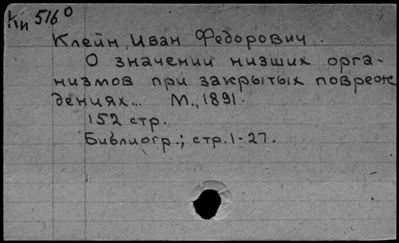 Кн 516⁰
Клейн, Иван Федорович.
О значении низших орга-
низмов при закрытых повреж
дениях... М., 1891.
152 стр.
Библиогр.; стр. 1-27.